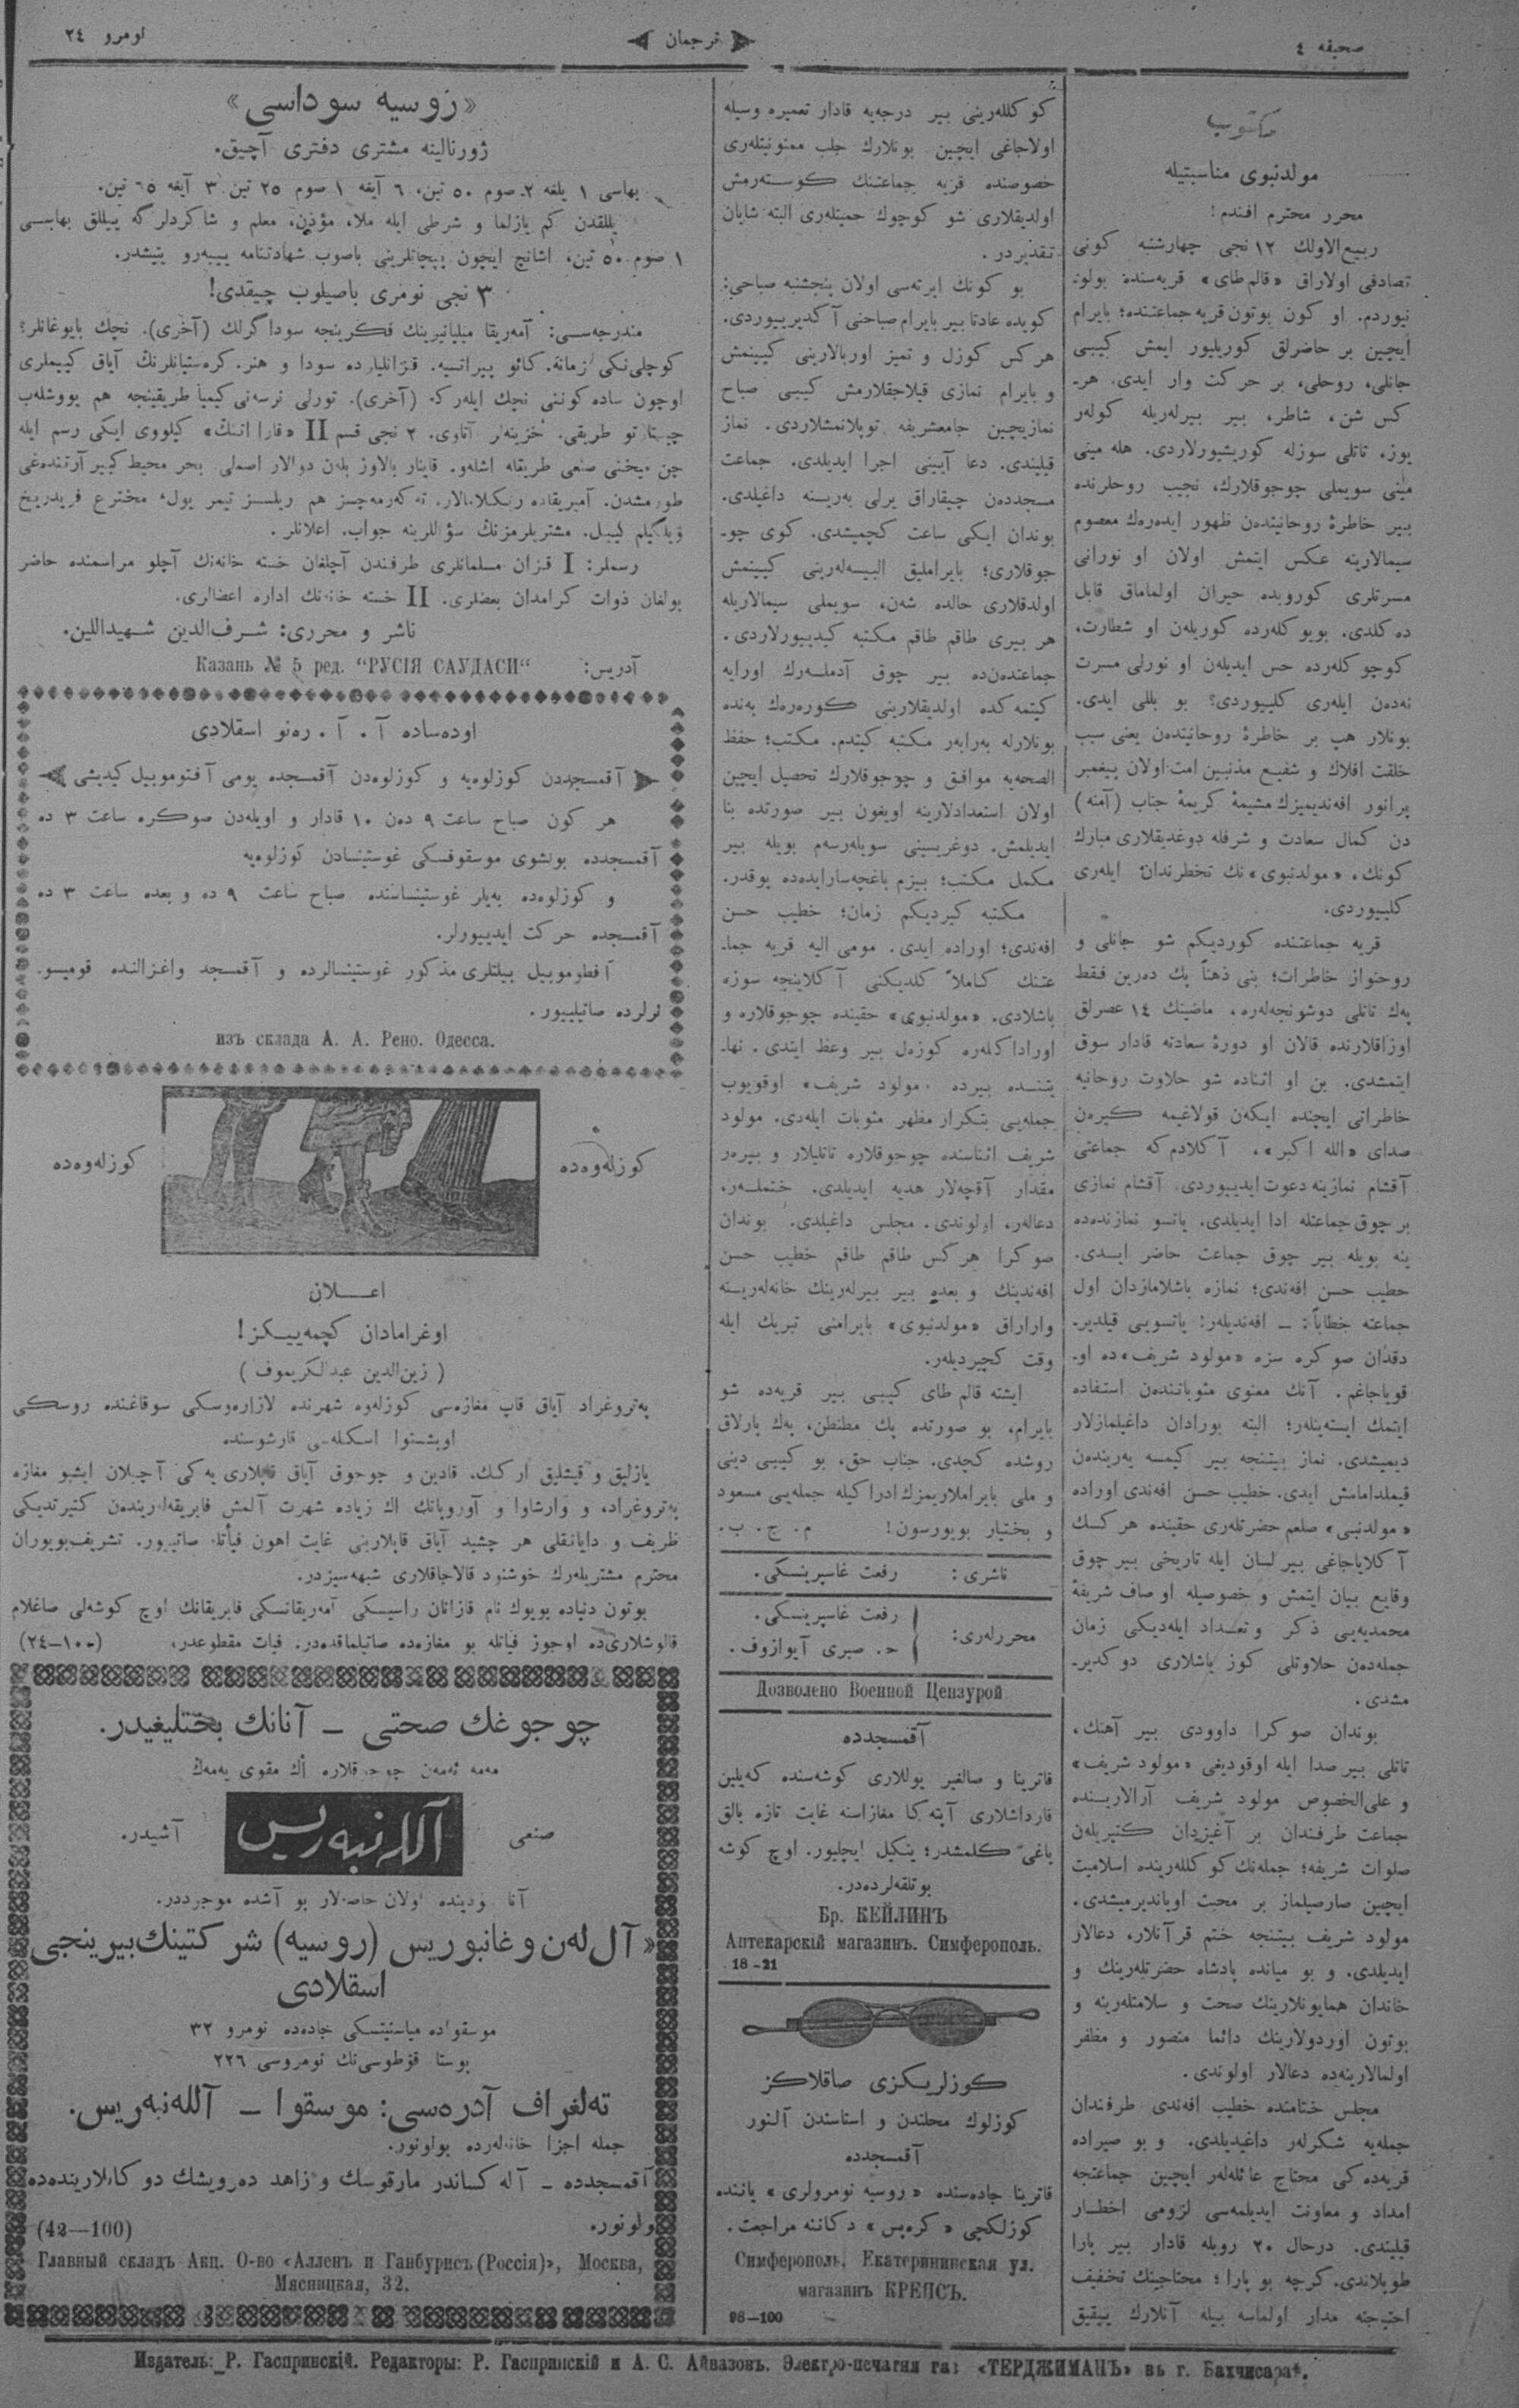 صحیفه ٤
ترجمان
نومرو ٢٤
مكتوب
مولدنبوی مناسبتیله
محرر محترم افندم!
ربیع‌الاولك ١٢ نجی چهارشنبه كونی
تصادفی اولاراق «قالم‌طای» قریه‌سنده بولو-
نیوردم. او كون بوتون قریه جماعتنده؛ بایرام
ایچین بر حاضرلق كوریلیور ایمش كیبی
جانلی، روحلی، بر حركت وار ایدی. هر-
كس شن، شاطر، بیر بیرله‌ریله كوله‌ر
یوز، تاتلی سوزله كوریشیورلاردی. هله مینی
مینی سویملی چوجوقلارك، نجیب روحلرنده
بیر خاطرهٔ روحانیتدن ظهور ایده‌رك معصوم
سیمالارینه عكس ایتمش اولان او نورانی
مسرتلری كوروبده حیران اولماماق قابل
ده كلدی. بویوكله‌رده كوریله‌ن او شطارت،
كوچوكله‌رده حس ایدیله‌ن او نورلی مسرت
نه‌دن ایله‌ری كلییوردی؟ بو بللی ایدی.
بونلار هپ بر خاطرهٔ روحانیتدن یعنی سبب
خلقت افلاك و شفیع مذنبین امت اولان پیغمبر
پرانور افه‌ندیمیزك مشیمهٔ كریمهٔ جناب (آمنه)
دن كمال سعادت و شرفله دوغدیقلاری مبارك
كونك، «مولدنبوی» نك تخطرندان ایله‌ری
كلییوردی.
قریه جماعتنده كوردیكم شو جانلی و
روحنواز خاطرات؛ بنی ذهناً پك ده‌رین فقط
په‌ك تاتلی دوشونجه‌له‌ره، ماضینك ١٤ عصرلق
اوزاقلارنده قالان او دورهٔ سعادته قادار سوق
ایتمشدی. بن او اثناده شو حلاوت روحانیه
خاطراتی ایچنده ایكه‌ن قولاغیمه كیره‌ن
صدای «الله اكبر»، آكلادم كه جماعتی
آقشام نمازینه دعوت ایدییوردی. آقشام نمازی
بر چوق جماعتله ادا ایدیلدی. یاتسو نمازنده‌ده
ینه بویله بیر چوق جماعت حاضر ایدی.
خطیب حسن افه‌ندی؛ نمازه باشلامازدان اول
جماعته خطاباً: — افه‌ندیله‌ر! یاتسویی قیلدیر-
دقدان صوكره سزه «مولود شریف» ده او-
قویاجاغم. آنك معنوی مثوباتندن استفاده
ایتمك ایسته‌ینله‌ر؛ البته بورادان داغیلمازلار
دیمیشدی. نماز بیتنجه بیر كیمسه یه‌رینده‌ن
قیملدامامش ایدی. خطیب حسن افه‌ندی اوراده
«مولدنبی» صلعم حضرتله‌ری حقینده هر كسك
آكلایاجاغی بیر لسان ایله تاریخی بیر چوق
وقایع بیان ایتمش و خصوصیله اوصاف شریفهٔ
محمدیه‌یی ذكر و تعداد ایله‌دیكی زمان
جمله‌دن حلاوتلی كوز یاشلاری دوكدیر-
مشدی.
بوندان صوكرا داوودی بیر آهنك،
تاتلی بیر صدا ایله اوقودیغی «مولود شریف»
و علی‌الخصوص مولود شریف آرالارینده
جماعت طرفندان بر آغیزدان كتیریله‌ن
صلوات شریفه؛ جمله‌نك كوكلله‌رینده اسلامیت
ایچین صارصیلماز بر محبت اویاندیرمیشدی.
مولود شریف بیتنجه ختم قرآنلار، دعالار
ایدیلدی. و بو میانده پادشاه حضرتله‌رینك و
خاندان همایونلارینك صحت و سلامتله‌رینه و
بوتون اوردولارینك دائما منصور و مظفر
اولمالارینه‌ده دعالار اولوندی.
مجلس ختامنده خطیب افه‌ندی طرفندان
جمله‌یه شكرلر داغیدیلدی. و بو صیراده
قریه‌ده‌كی محتاج عائله‌لر ایچین جماعتجه
امداد و معاونت ایدیلمه‌سی لزومی اخطار
قیلیندی. درحال ٢٠ روبله قادار بیر پارا
طوپلاندی. كرچه بو پارا؛ محتاجینك تخفیف
احتیاجنه مدار اولماسه بیله آنلارك ییقیق
كوكلله‌رینی بیر درجه‌یه قادار تعمیره وسیله
اولاجاغی ایچین بونلارك جلب ممنونیتله‌ری
خصوصنده قریه جماعتنك كوسته‌رمش
اولدیقلاری شو كوچوك حمیتله‌ری البته شایان
تقدیردر.
بو كونك ایرته‌سی اولان پنجشنبه صباحی؛
كویده عادتا بیر بایرام صباحنی آكدیرییوردی.
هر كس كوزل و تمیز اوربالارینی كیینمش
و بایرام نمازی قیلاجقلارمش كیبی صباح
نمازیچین جامعشریفه توپلانمشلاردی. نماز
قیلیندی. دعا آیینی اجرا ایدیلدی. جماعت
مسجددن چیقاراق یرلی یه‌رینه داغیلدی.
بوندان ایكی ساعت كچمیشدی. كوی چو-
جوقلاری؛ بایراملیق البیسه‌له‌رینی كیینمش
اولدقلاری حالده شه‌ن، سویملی سیمالاریله
هر بیری طاقم طاقم مكتبه كیدییورلاردی.
جماعتدن‌ده بیر چوق آدمله‌رك اورایه
كیتمه‌كده اولدیقلارینی كوره‌رك بنده
بونلارله به‌رابه‌ر مكتبه كیتدم. مكتب؛ حفظ
الصحه‌یه موافق و چوجوقلارك تحصیل ایچین
اولان استعدادلارینه اویغون بیر صورتده بنا
ایدیلمش. دوغریسینی سویله‌رسه‌م بویله بیر
مكمل مكتب؛ بیزم باغچه‌سارایده‌ده یوقدر.
مكتبه كیردیكم زمان؛ خطیب حسن
افه‌ندی؛ اوراده ایدی. مومی الیه قریه جما-
عتنك كاملاً كلدیكنی آكلاینجه سوزه
باشلادی. «مولدنبوی» حقینده چوجوقلاره و
اوراداكیله‌ره كوزه‌ل بیر وعظ ایتدی. نها-
یتنده بیرده «مولود شریف» اوقویوب
جمله‌یی بتكرار مظهر مثوبات ایله‌دی. مولود
شریف اثناسنده چوجوقلاره تاتلیلار و بیره‌ر
مقدار آقچه‌لار هدیه ایدیلدی. ختمله‌ر،
دعاله‌ر، اولوندی. مجلس داغیلدی. بوندان
صوكرا هر كس طاقم طاقم خطیب حسن
افه‌ندینك و بعده بیر بیرله‌رینك خانه‌له‌رینه
واراراق «مولدنبوی» بایرامنی تبریك ایله
وقت كچیردیله‌ر.
ایشته قالم طای كیبی بیر قریه‌ده شو
بایرام، بو صورتده پك مطنطن، په‌ك پارلاق
روشده كچدی. جناب حق، بو كیبی دینی
و ملی بایراملاریمزك ادراكیله جمله‌یی مسعود
و بختیار بویورسون! م. ج. ب.
ناشری: رفعت غاسپرینسكی.
محررله‌ری: رفعت غاسپرینسكی.
ح. صبری آیوازوف.
Дозволено Военной Цензурой
آقمسجدده
قاترینا و صالغیر یوللاری كوشه‌سنده كه‌یلین
قارداشلاری آپته‌كا مغازاسنه غایت تازه بالق
یاغی كلمشدر؛ ینكیل ایچلیور. اوچ كوشه
بوتلقه‌لرده‌در.
Бр. КЕЙЛИНЪ
Аптекарскій магазинъ. Симферополь.
18-21
كوزلریكزی صاقلاكز
كوزلوك محلندن و استاسندن آلنور
آقمسجدده
قاترینا جاده‌سنده «روسیه نومرولری» یاننده
كوزلكجی «كره‌پس» دكاننه مراجعت.
Симферополь. Екатерининская ул.
магазинъ КРЕПСЪ.
98—100
«روسیه سوداسی»
ژورنالینه مشتری دفتری آچیق.
بهاسی ١ یلغه ٢ صوم ٥٠ تین، ٦ آیغه ١ صوم ٢٥ تین ٣ آیغه ٦٥ تین.
یللقدن كم یازلما و شرطی ایله ملا، مؤذن، معلم و شاكردلرگه ییللق بهاسی
١ صوم ٥٠ تین، اشانچ ایچون پیچاتلرینی باصوب شهادتنامه ییبه‌رو یتیشدر.
٣ نجی نومری باصیلوب چیقدی!
مندرجه‌سی: آمه‌ریقا میلیانیرینك فكرینجه سوداگرلك (آخری). نچك بایوغانلر؟
كوچلی‌نكی زمانه. كائو پیراتسیه. قزانلیارده سودا و هنر. كره‌ستیانلرنڭ آیاق كییملری
اوچون ساده كوننی نچك ایله‌رگه (آخری). تورلی نرسه‌نی كیمیا طریقینجه هم یووشله‌ب
چیتارتو طریقی. خزینه‌لر آتاوی. ٢ نجی قسم II «قارا اتنڭ» كیلووی ایكی رسم ایله
رسملر: I قزان مسلمانلری طرفندن آچلغان خسته خانه‌نڭ آچلو مراسمنده حاضر
بولغان ذوات كرامدان بعضلری. II خسته خانه‌نڭ اداره اعضالری.
ناشر و محرری: شرف‌الدین شهیداللین.
آدریس: Казань № 5 ред. "РУСІЯ САУДАСИ"
اوده‌ساده آ. آ. ره‌نو اسقلادی
آقمسجددن كوزلوه‌یه و كوزلوه‌دن آقمسجده یومی آفتوموبیل كیدیشی
هر كون صباح ساعت ٩ ده‌ن ١٠ قادار و اویله‌دن صوكره ساعت ٣ ده
آقمسجدده بولشوی موسقوفسكی غوستینسادن كوزلوه‌یه
و كوزلوه‌ده به‌یلر غوستینساسنده صباح ساعت ٩ ده و بعده ساعت ٣ ده
آقمسجده حركت ایدییورلر.
آفطوموبیل بیلتلری مذكور غوستینسالرده و آقمسجد واغزالنده قومیسو-
نرلرده صاتیلییور.
изъ склада А. А. Рено. Одесса.
كوزله‌وه‌ده
كوزله‌وه‌ده
اعلان
اوغرامادان كچمه‌ییكز!
(زین‌الدین عبدالكریموف)
په‌تروغراد آیاق قاپ مغازه‌سی كوزله‌وه شهرنده لازاره‌وسكی سوقاغنده روسكی
اوبشستوا اسكله‌سی قارشوسنده
یازلیق و قیشلیق اركك، قادین و چوجوق آیاق قاپلاری یه‌كی آچیلان ایشبو مغازه
په‌تروغراد، و وارشاوا و آوروپانك اك زیاده شهرت آلمش فابریقه‌لریندن كتیرتدیكی
ظریف و دایانقلی هر چشید آیاق قاپلارینی غایت اهون فیأتله صاتییور. تشریف‌بویوران
محترم مشتریله‌رك خوشنود قالاجاقلاری شبهه‌سیزدر.
بوتون دنیاده بویوك نام قازانان راسیسكی آمه‌ریقانسكی فابریقانك اوچ كوشه‌لی صاغلام
قالوشلاری‌ده اوجوز فیاتله بو مغازه‌ده صاتیلماقده‌در. فیات مقطوعدر،
چوجوغك صحتی — آنانك بختلیغیدر.
مه‌مه ئه‌مه‌ن چوجوقلاره اك مقوی یه‌مه‌ك
صنعی
آللەنبەریس
آشیدر.
آنا سودینده اولان خاصه‌لار بو آشده موجوددر.
«آل‌له‌ن و غانبوریس (روسیه) شركتینك بیرینجی
اسقلادی
موسقواده میاسنیتسكی جاده‌ده نومرو ٣٢
پوستا قوطوسی‌نك نومروسی ٢٢٦
ته‌لغراف آدره‌سی: موسقوا — آلله‌نبه‌ریس.
جمله اجزا خانه‌لرده بولونور.
آقمسجدده — آله‌كساندر مارقوسك و زاهد ده‌رویشك دوكانلارینده‌ده
بولونور.
(42—100)
Главный складъ Акц. О-во «Алленъ и Ганбурисъ (Россія)», Москва,
Мясницкая, 32.
Издатель: Р. Гаспринскій. Редакторы: Р. Гаспринскій и А. С. Айвазовъ. Электро-печатня газ. «ТЕРДЖИМАНЪ» въ г. Бахчисараѣ.